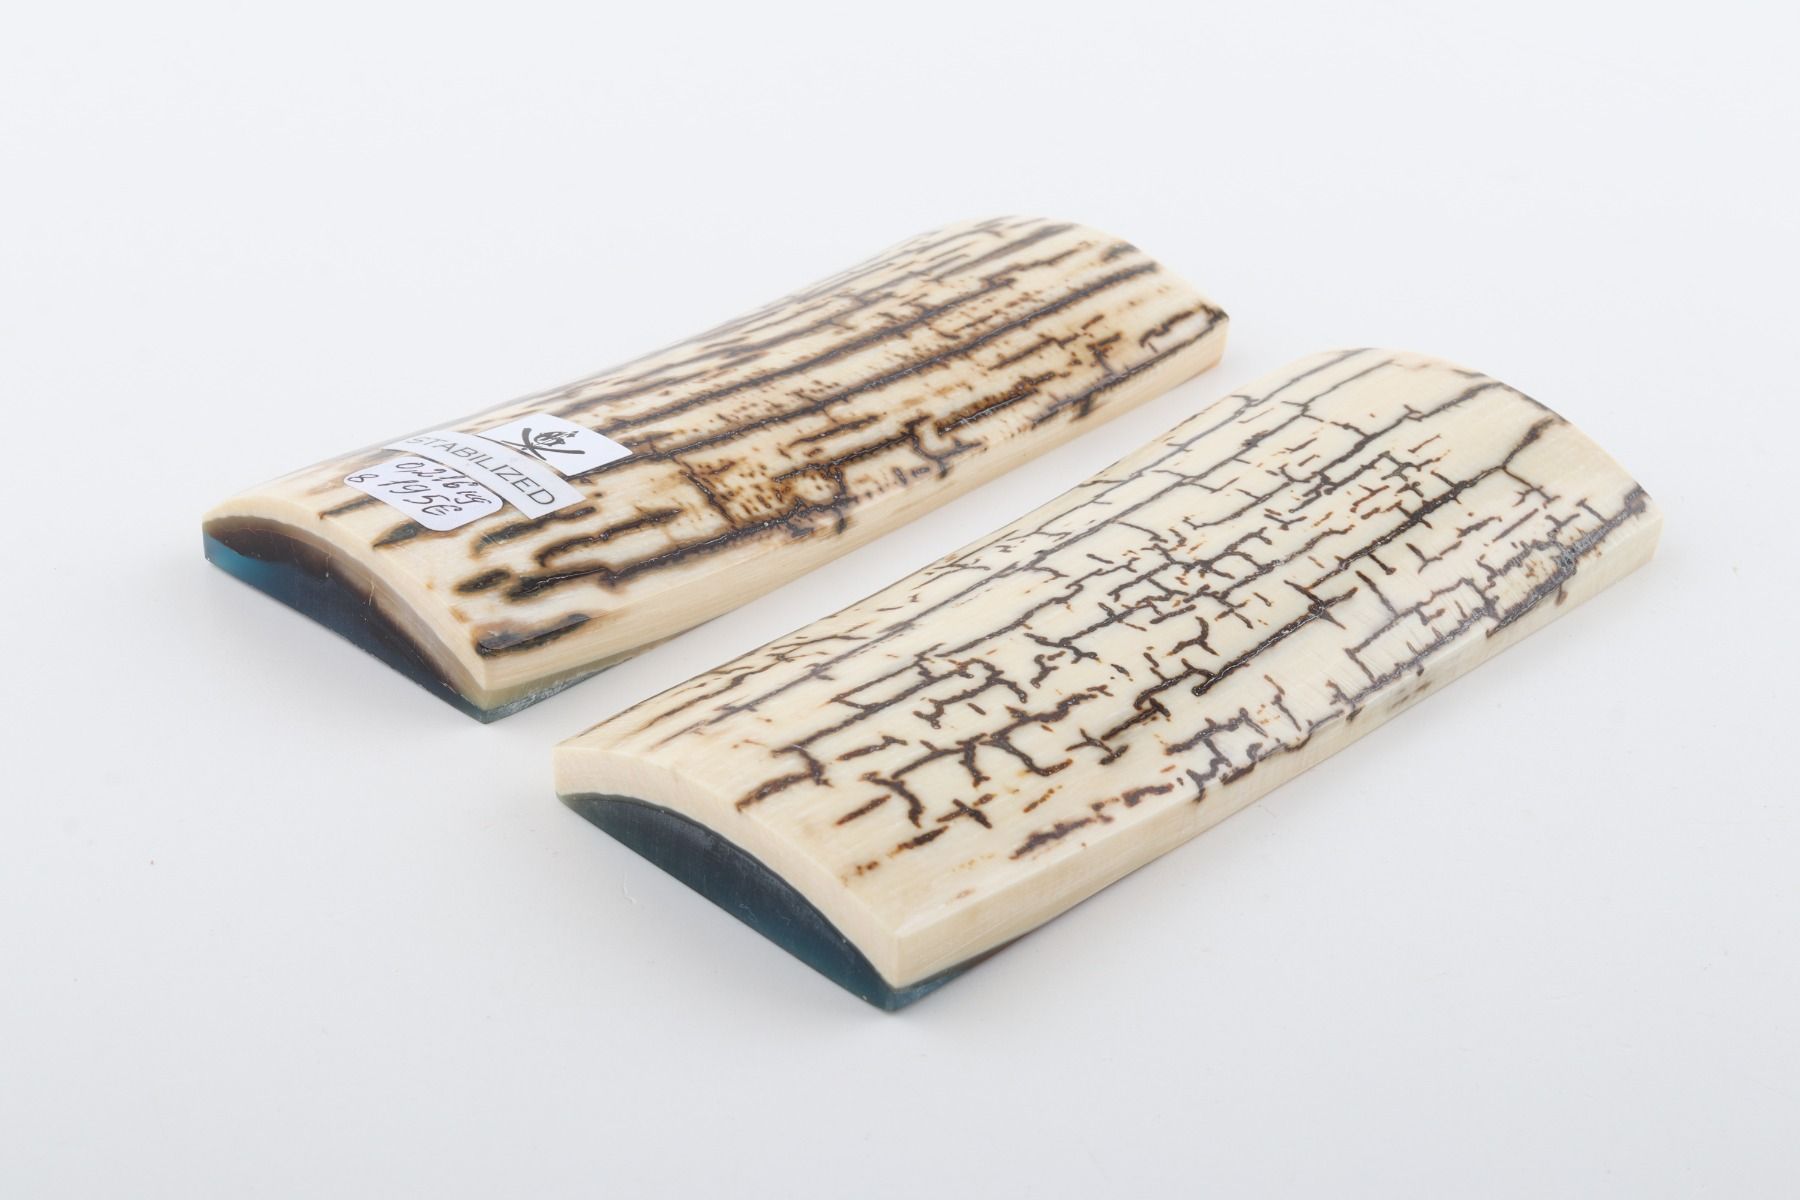 STABILIZED
0,216 kg
B 195€